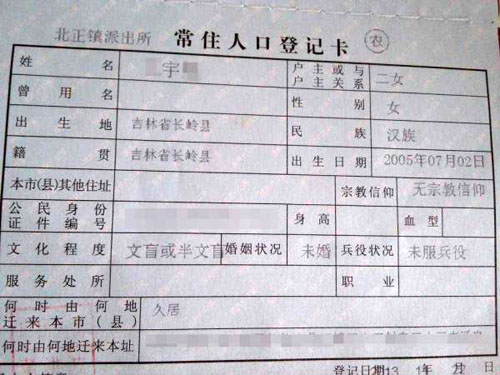 北正镇派出所 常住人口登记卡 农
姓名 宇 户主或与户主关系 二女
曾用名 性别 女
出生地 吉林省长岭县 民族 汉族
籍贯 吉林省长岭县 出生日期 2005年07月02日
本市(县)其他住址 宗教信仰 无宗教信仰
公民身份证件编号 身高 血型
文化程度 文盲或半文盲 婚姻状况 未婚 兵役状况 未服兵役
服务处所 职业
何时由何地迁来本市(县) 久居
何时由何地迁来本址
登记日期 年 月 日